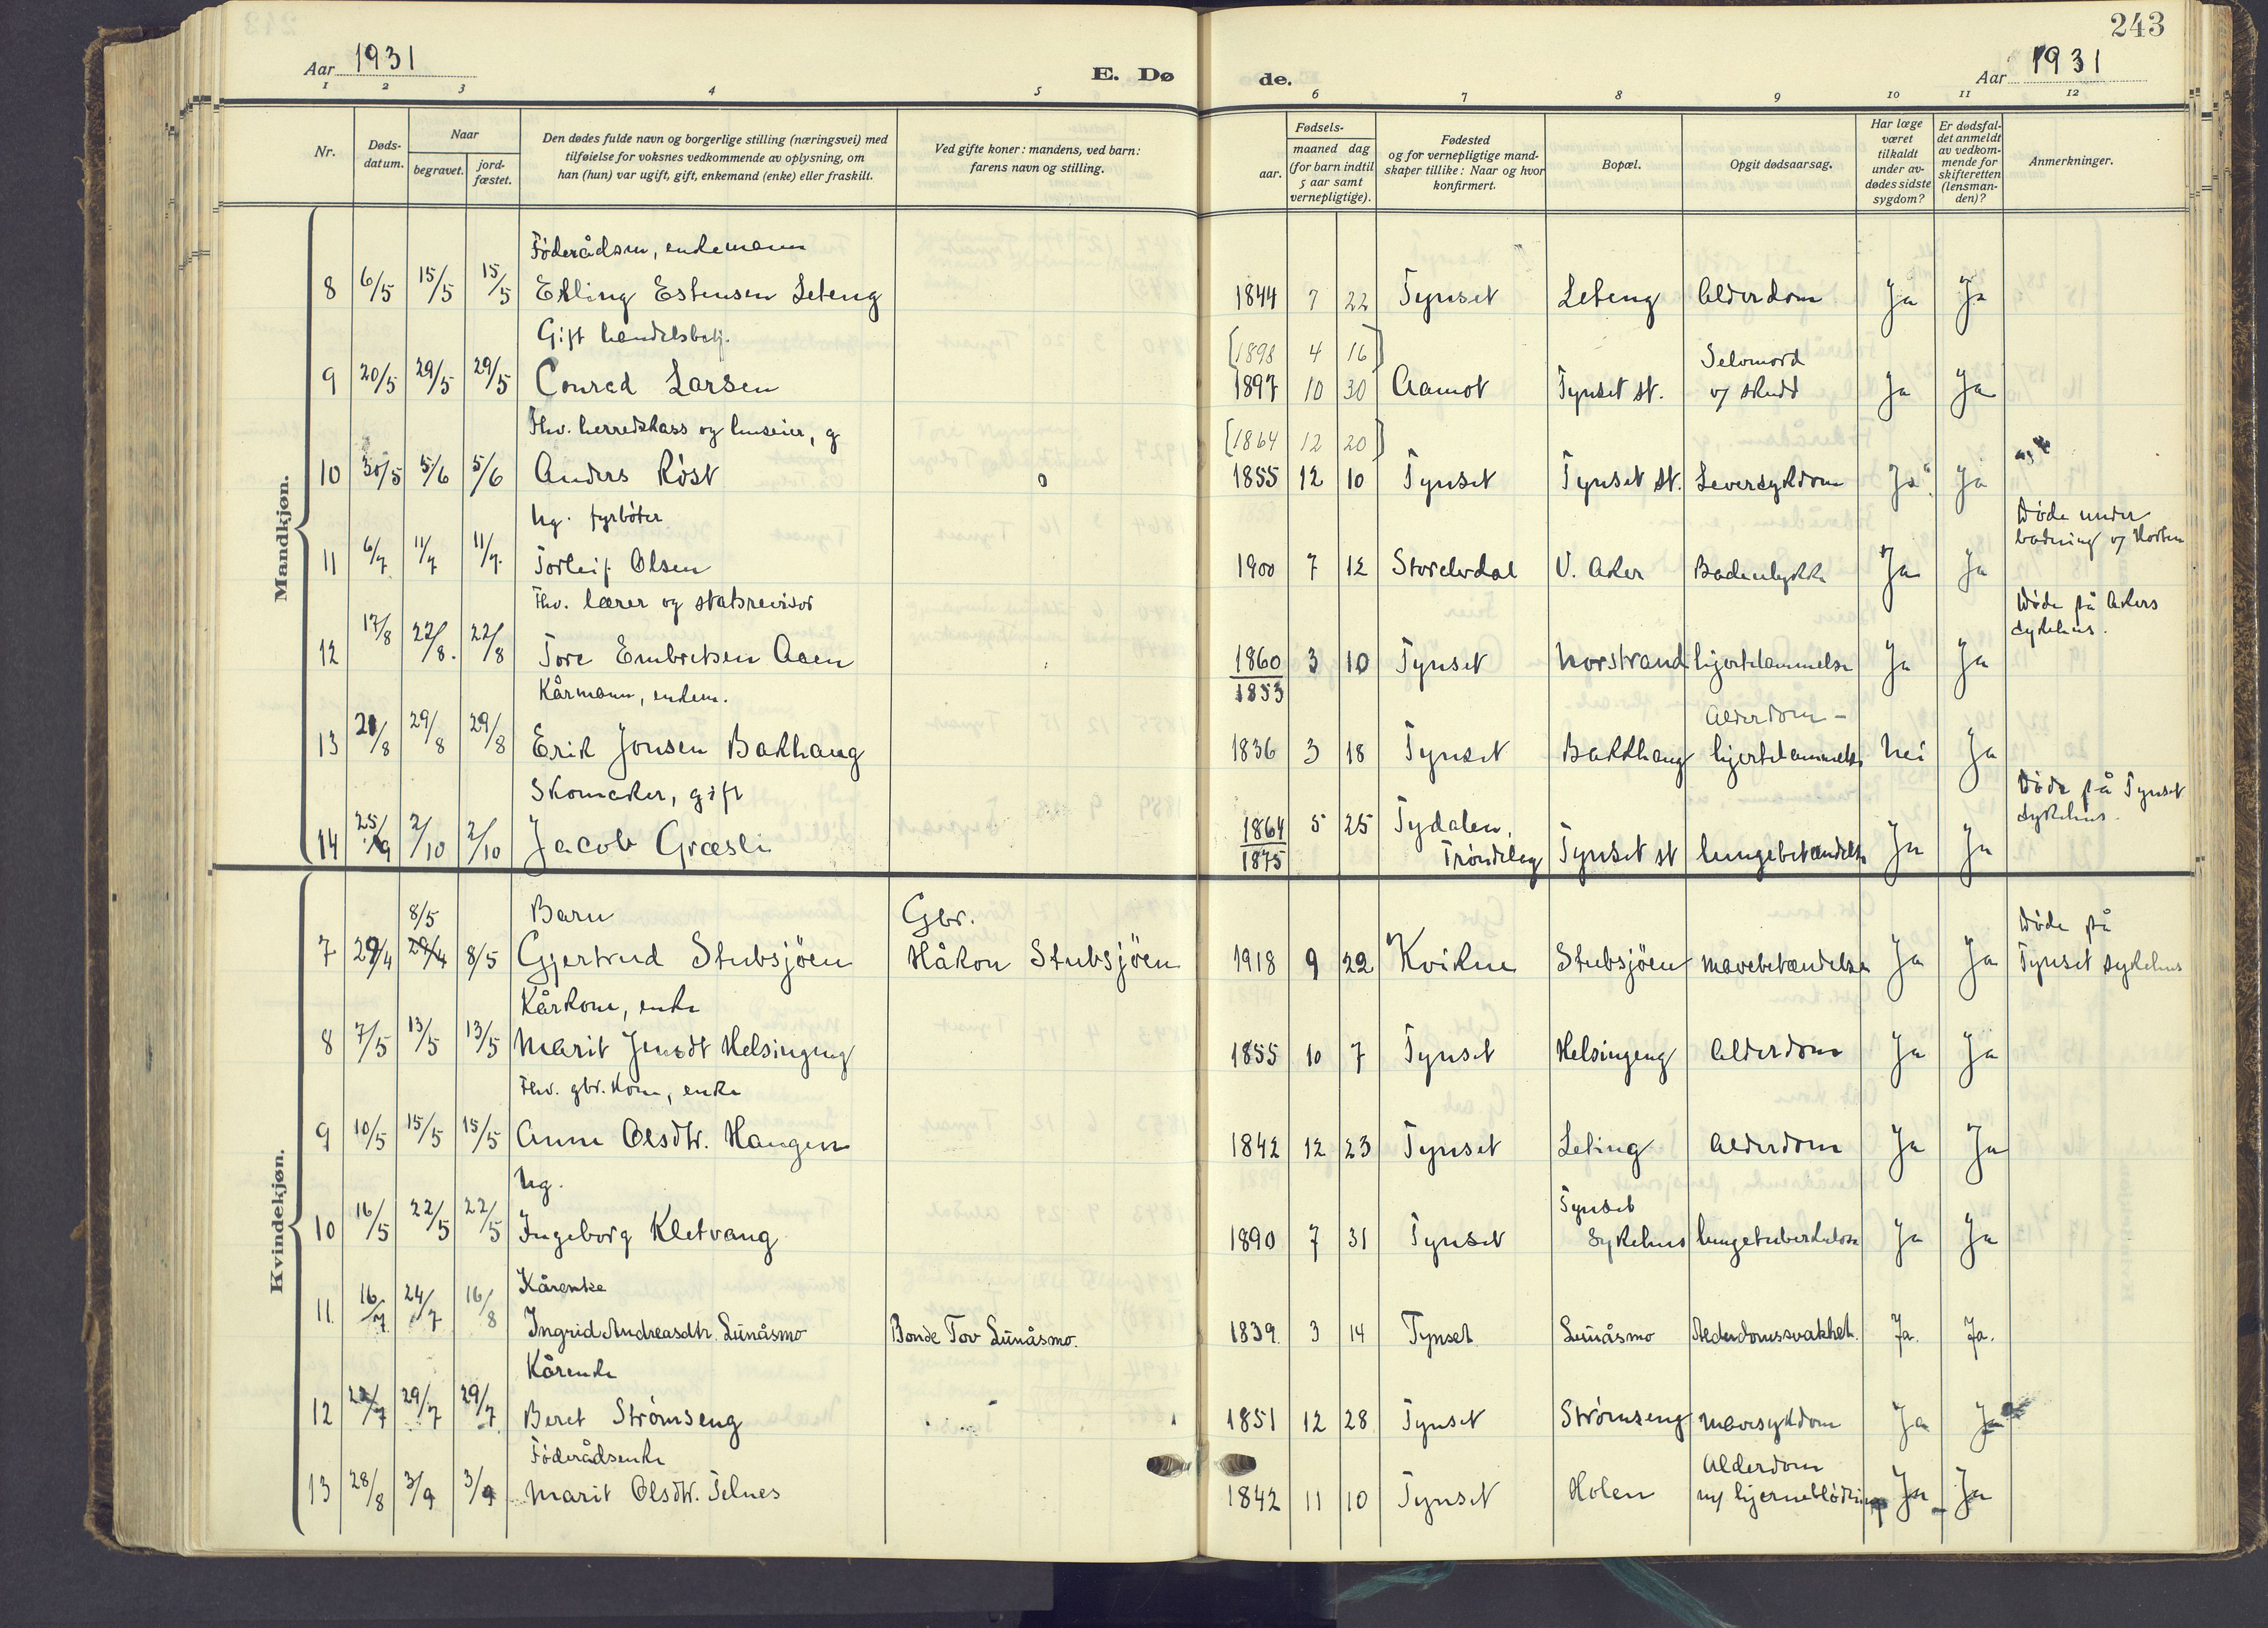 243
Aar 1931
E. Dø de.
Aar 1931
1 2 3 4 5 6 7 8 9 10 11 12
Nr.
Døds-datum.
Naar
begravet.
jord-fæstet.
Den dødes fulde navn og borgerlige stilling (næringsvei) med
tilføielse for voksnes vedkommende av oplysning, om
han (hun) var ugift, gift, enkemand (enke) eller fraskilt.
Ved gifte koner: mandens, ved barn:
farens navn og stilling.
Fødsels-
aar.
maaned dag
(for barn indtil
5 aar samt
vernepligtige).
Fødested
og for vernepligtige mand-
skaper tillike: Naar og hvor
konfirmert.
Bopæl.
Opgit dødsaarsag.
Har læge
været
tilkaldt
under av-
dødes sidste
sygdom?
Er dødsfal-
det anmeldt
av vedkom-
mende for
skifteretten
(lensman-
den)?
Anmerkninger.
Mandkjøn.
Føderådsm, enkemann
8 6/5 15/5 15/5 Erling Estensen Leteng 1844 7 22 Tynset Leteng Alderdom Ja Ja
Gift handelsbetj.
[1898 4 16] Selvmord
9 20/5 29/5 29/5 Conrad Larsen 1897 10 30 Aamot Tynset st. v/ skudd Ja Ja
Fhv. herredskass og huseier, g
[1864 12 20]
10 30/5 5/6 5/6 Anders Røst 1855 12 10 Tynset Tynset st. Leversykdom Ja Ja
Ug. fyrbøter Døde under
badning v/ Horten
11 6/7 11/7 11/7 Torleif Olsen 1900 7 12 Storelvdal V. Aker Badeulykke Ja Ja
Fhv. lærer og statsrevisor Døde på Akers
sykehus.
12 17/8 22/8. 22/8 Tore Embretsen Aaen 1860 3 10 Tynset Norstrand hjertelammelse Ja Ja
1853
Kårmann, enkem.
Alderdom -
13 21/8 29/8 29/8 Erik Jonsen Bakhaug 1836 3 18 Tynset Bakkhaug hjertelammelse Nei Ja
Skomaker, gift Døde på Tynset
sykehus.
14 25/9 2/10 2/10 Jacob Græsli 1864 5 25 Tydalen,
1875 Trøndelag Tynset st lungebetændelse Ja Ja
Kvindekjøn.
8/5 Barn Gbr. Døde på
7 29/4 29/4 8/5 Gjertrud Stubsjöen Håkon Stubsjöen 1918 9 22 Kvikne Stubsjöen mavebetændelse Ja Ja Tynset sykehus
Kårkone, enke
8 7/5 13/5 13/5 Marit Jensdt Helsingeng 1855 10 7 Tynset Helsingeng Alderdom Ja Ja
Fhv. gbr. kone, enke
9 10/5 15/5 15/5 Anne Olsdtr. Haugen 1842 12 23 Tynset Leting Alderdom Ja Ja
Ug.
Tynset
10 16/5 22/5 22/5 Ingeborg Kletvang 1890 7 31 Tynset Sykehus lungetuberkulose Ja Ja
Kårenke
11. 16/7 24/7 16/8 Ingrid Andreasdtr. Lunåsmo Bonde Tov Lunåsmo. 1839. 3 14 Tynset Lunåsmo Alderdomssvakhet. Ja. Ja.
Kårenke
12 22/7 29/7 29/7 Beret Strømseng 1851 12 28 Tynset Strømseng mavesykdom Ja Ja
Føderådsenke Alderdom
13 28/8 3/9 3/9 Marit Olsdtr. Telnes 1842 11 10 Tynset Holen m/ hjerneblødning Ja Ja